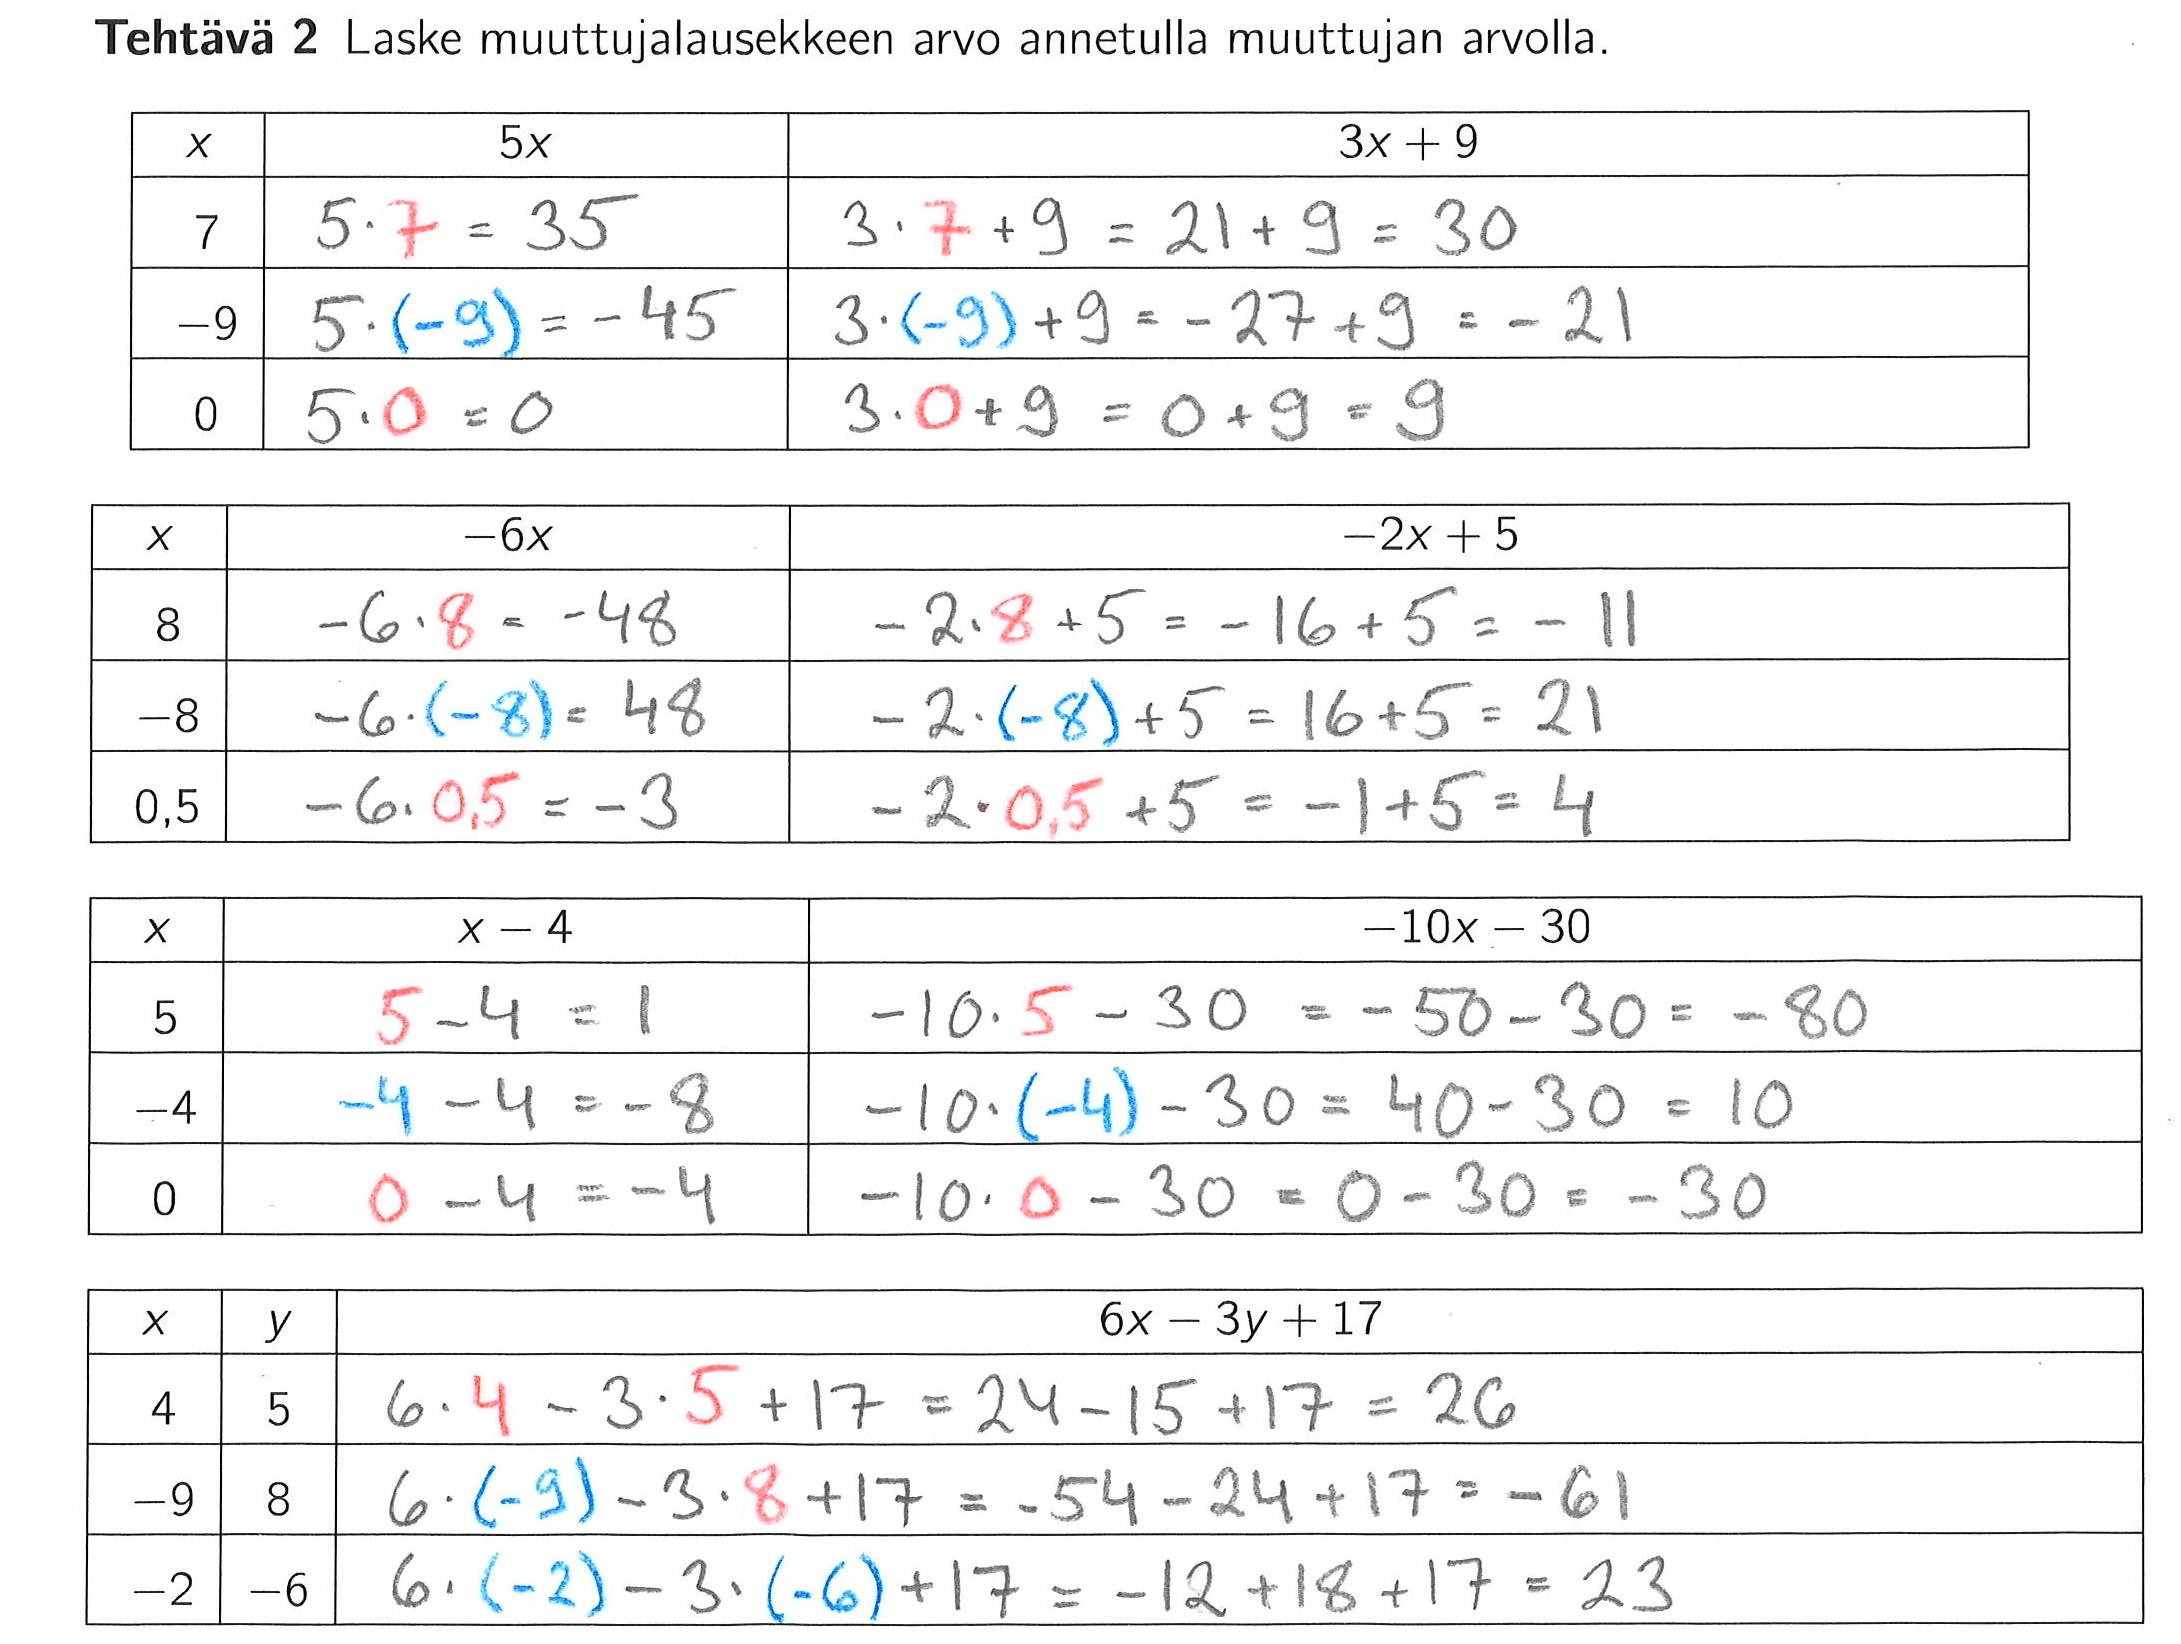 Tehtävä 2 Laske muuttujalausekkeen arvo annetulla muuttujan arvolla.
x 5x 3x + 9
7 5·7 = 35 3·7+9 = 21+9 = 30
−9 5·(-9) = -45 3·(-9)+9 = -27+9 = -21
0 5·0 = 0 3·0+9 = 0+9 = 9
x −6x −2x + 5
8 -6·8 = -48 -2·8+5 = -16+5 = -11
−8 -6·(-8) = 48 -2·(-8)+5 = 16+5 = 21
0,5 -6·0,5 = -3 -2·0,5+5 = -1+5 = 4
x x − 4 −10x − 30
5 5-4 = 1 -10·5-30 = -50-30 = -80
−4 -4-4 = -8 -10·(-4)-30 = 40-30 = 10
0 0-4 = -4 -10·0-30 = 0-30 = -30
x y 6x − 3y + 17
4 5 6·4-3·5+17 = 24-15+17 = 26
−9 8 6·(-9)-3·8+17 = -54-24+17 = -61
−2 −6 6·(-2)-3·(-6)+17 = -12+18+17 = 23